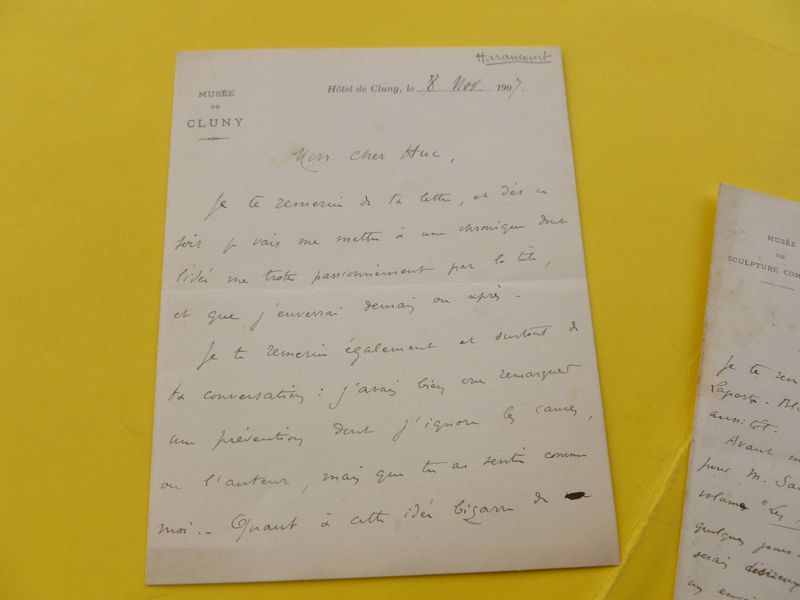 Haraucourt
MUSÉE
DE
CLUNY
Hôtel de Cluny, le 8 Nov. 1907.
Mon cher Huc,
Je te remercie de ta lettre, et dès ce
soir je vais me mettre à une chronique dont
l'idée me trotte passionnément par la tête,
et que j'enverrai demain ou après.
Je te remercie également et surtout de
ta conversation : j'avais bien cru remarquer
une prévention dont j'ignore les causes,
ou l'auteur, mais que tu as sentie comme
moi.. Quant à cette idée bizarre de
MUSÉE
DE
SCULPTURE COM
Je te rem
Laporte-Bl
aussitôt.
Avant
pour M. Sa
volume "Les
quelques jours
serais